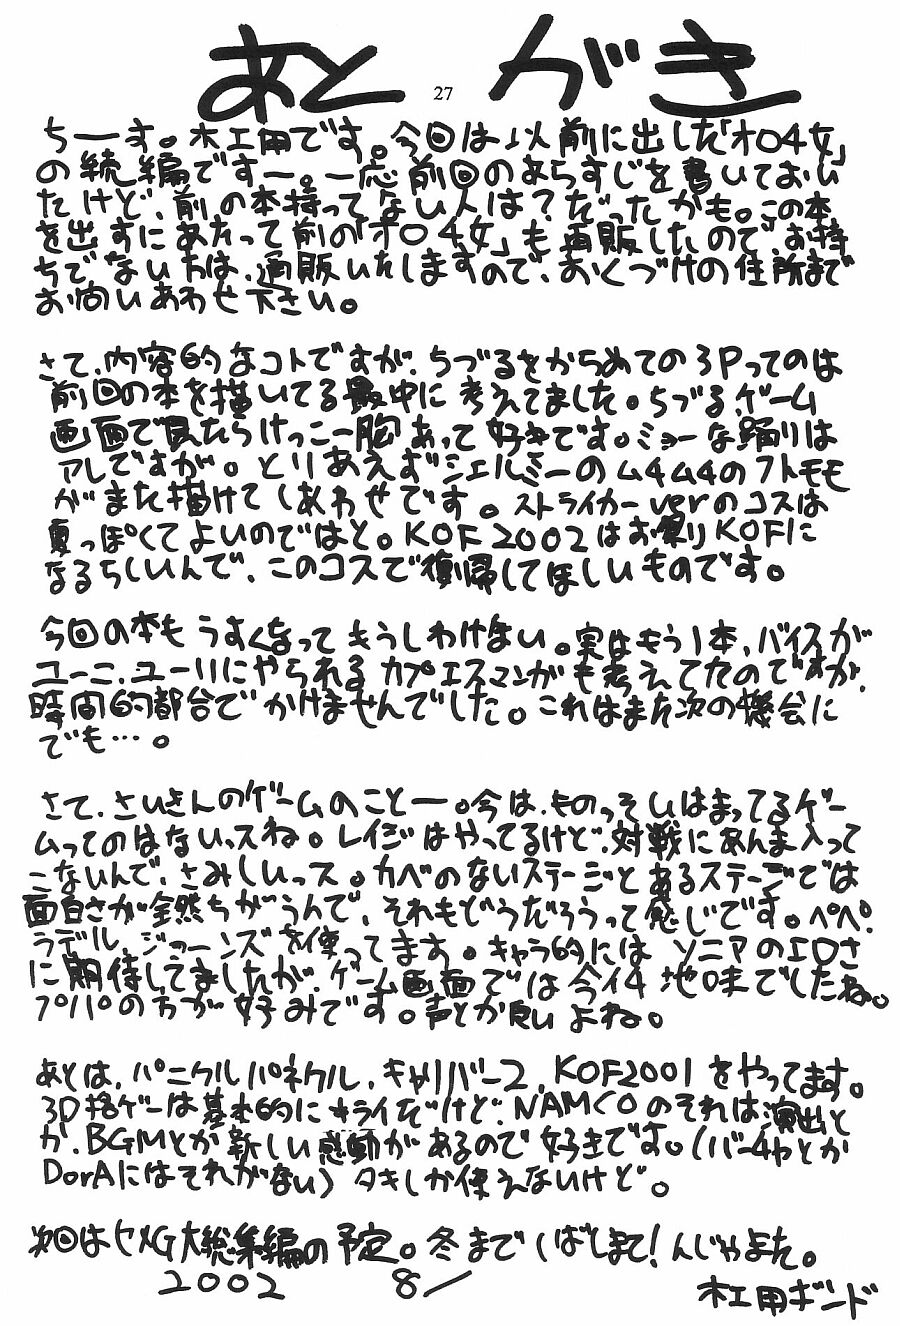 あとがき
27
ちーす。木工用です。今回は以前に出した「オロ4女」
の続編ですー。一応前回のあらすじを書いておい
たけど、前の本持ってない人は?だったかも。この本
を出すにあたって前の「オロ4女」も再販したので、お持
ちでない方は、通販いたしますので、おくづけの住所まで
お問いあわせ下さい。
さて、内容的なコトですが、ちづるをからめての3Pってのは
前回の本を描いてる最中に考えてました。ちづる、ゲーム
画面で見たらけっこー胸あって好きです。ミョーな踊りは
アレですが。とりあえずシェルミーのム4ム4のフトモモ
がまた描けてしあわせです。ストライカーverのコスは
夏っぽくてよいのではと。KOF2002はお祭りKOFに
なるらしいんで、このコスで復帰してほしいものです。
今回の本もうすくなってもうしわけない。実はもう1本、バイスが
ユーニ、ユーリにやられるカプエスマンガも考えてたのですが、
時間的都合でかけませんでした。これはまた次の機会に
でも…。
さて、さいきんのゲームのことー。今は、ものっそいはまってるゲー
ムってのはないっスね。レイジはやってるけど、対戦にあんま入って
こないんで、さみしいっス。カベのないステージとあるステージでは
面白さが全然ちがうんで、それもどうだろうって感じです。ペペ、
ラデル、ジョーンズを使ってます。キャラ的にはソニアのエロさ
に期待してましたが、ゲーム画面では今イ4地味でしたね。
プルプの方が好みです。声とか良いよね。
あとは、パニクルパネクル、キャリバー2、KOF2001をやってます。
3D格ゲーは基本的にキライだけど、NAMCOのそれは演出と
か、BGMとか新しい感動があるので好きです。(バー4ャとか
DorAにはそれがない)タキしか使えないけど。
次回はヒメG大総集編の予定。冬までしばしまて!んじゃまた。
2002 8/
木工用ボンド